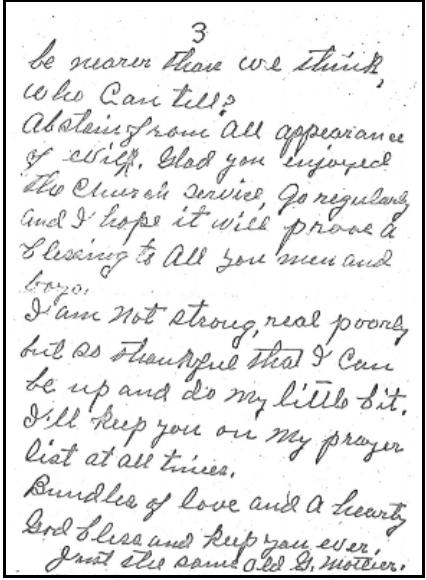 3
be nearer than we think,
who Can tell?
Abstain from all appearance
of evil. Glad you enjoyed
the Church service, Go regularly
and I hope it will prove a
blessing to All you men and
boys.
I am not strong, real poorly
but so thankful that I Can
be up and do my little bit.
I'll keep you on my prayer
list at all times.
Bundles of love and a hearty
God bless and keep you ever,
Just the same old G. Mother.